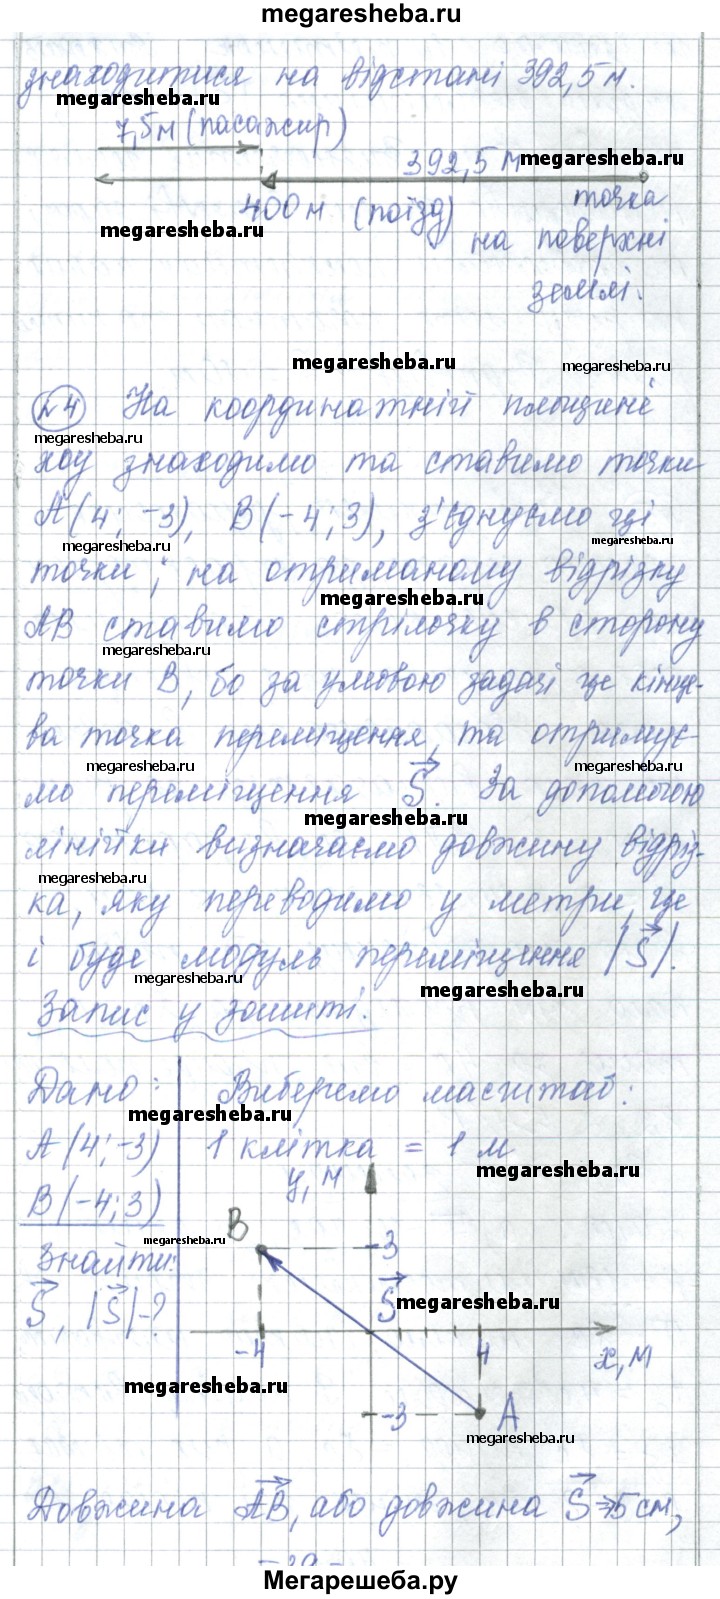 megaresheba.ru
знаходитися на відстані 392,5 м.
megaresheba.ru
7,5 м (пасажир)
392,5 м megaresheba.ru
400 м (поїзд) точка
megaresheba.ru на поверхні
землі.
megaresheba.ru megaresheba.ru
№4 На координатній площині
megaresheba.ru
хоу знаходимо та ставимо точки
А(4; -3), В(-4; 3), з'єднуємо ці
megaresheba.ru megaresheba.ru
точки; на отриманому відрізку
megaresheba.ru
АВ ставимо стрілочку в сторону
megaresheba.ru
точки В, бо за умовою задачі це кінце-
ва точка переміщення, та отримує-
megaresheba.ru megaresheba.ru
мо переміщення S. За допомогою
megaresheba.ru
лінійки визначаємо довжину відріз-
megaresheba.ru
ка, яку переводимо у метри, це
і буде модуль переміщення |S|.
megaresheba.ru megaresheba.ru
Запис у зошиті.
Дано: Виберемо масштаб:
megaresheba.ru
А(4; -3) 1 клітка = 1 м
megaresheba.ru
у, м
В(-4; 3)
В
megaresheba.ru
3
Знайти:
S
megaresheba.ru
S, |S|-?
-4 4 х, м
megaresheba.ru
-3 А
megaresheba.ru
Довжина АВ, або довжина S → 5 см,
Мегарешеба.ру